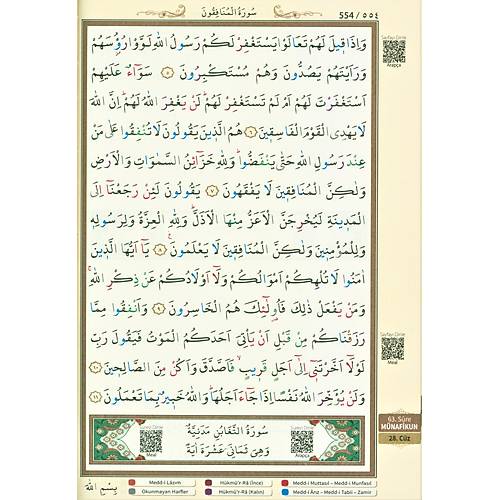 سُورَةُ الْمُنَافِقُونَ
554 / ٥٥٤
Sayfayı Dinle
Arapça
وَاِذَا قٖيلَ لَهُمْ تَعَالَوْا يَسْتَغْفِرْ لَكُمْ رَسُولُ اللّٰهِ لَوَّوْا رُؤُ۫سَهُمْ
وَرَاَيْتَهُمْ يَصُدُّونَ وَهُمْ مُسْتَكْبِرُونَ ﴿٥﴾ سَوَٓاءٌ عَلَيْهِمْ
اَسْتَغْفَرْتَ لَهُمْ اَمْ لَمْ تَسْتَغْفِرْ لَهُمْ لَنْ يَغْفِرَ اللّٰهُ لَهُمْ اِنَّ اللّٰهَ
لَا يَهْدِى الْقَوْمَ الْفَاسِقٖينَ ﴿٦﴾ هُمُ الَّذٖينَ يَقُولُونَ لَا تُنْفِقُوا عَلٰى مَنْ
عِنْدَ رَسُولِ اللّٰهِ حَتّٰى يَنْفَضُّوا وَلِلّٰهِ خَزَٓائِنُ السَّمٰوَاتِ وَالْاَرْضِ
وَلٰكِنَّ الْمُنَافِقٖينَ لَا يَفْقَهُونَ ﴿٧﴾ يَقُولُونَ لَئِنْ رَجَعْنَٓا اِلَى
الْمَدٖينَةِ لَيُخْرِجَنَّ الْاَعَزُّ مِنْهَا الْاَذَلَّ وَلِلّٰهِ الْعِزَّةُ وَلِرَسُولِهٖ
وَلِلْمُؤْمِنٖينَ وَلٰكِنَّ الْمُنَافِقٖينَ لَا يَعْلَمُونَ ﴿٨﴾ يَٓا اَيُّهَا الَّذٖينَ
اٰمَنُوا لَا تُلْهِكُمْ اَمْوَالُكُمْ وَلَٓا اَوْلَادُكُمْ عَنْ ذِكْرِ اللّٰهِ
وَمَنْ يَفْعَلْ ذٰلِكَ فَاُولٰٓئِكَ هُمُ الْخَاسِرُونَ ﴿٩﴾ وَاَنْفِقُوا مِمَّا
رَزَقْنَاكُمْ مِنْ قَبْلِ اَنْ يَاْتِىَ اَحَدَكُمُ الْمَوْتُ فَيَقُولَ رَبِّ
لَوْلَٓا اَخَّرْتَنٖٓى اِلٰٓى اَجَلٍ قَرٖيبٍ فَاَصَّدَّقَ وَاَكُنْ مِنَ الصَّالِحٖينَ ﴿١٠﴾
وَلَنْ يُؤَخِّرَ اللّٰهُ نَفْسًا اِذَا جَٓاءَ اَجَلُهَا وَاللّٰهُ خَبٖيرٌ بِمَا تَعْمَلُونَ ﴿١١﴾
Sayfayı Dinle
Meal
63. Sûre
MÜNAFİKUN
28. Cüz
سُورَةُ التَّغَابُنِ مَدَنِيَّةٌ
وَهِىَ ثَمَانِىَ عَشْرَةَ اٰيَةً
Sureyi Dinle
Meal
Sureyi Dinle
Arapça
بِسْمِ اللّٰهِ
Medd-i Lâzım
Hükmü'r-Râ (İnce)
Medd-i Muttasıl – Medd-i Munfasıl
Okunmayan Harfler
Hükmü'r-Râ (Kalın)
Medd-i Ârız – Medd-i Tabii – Zamir